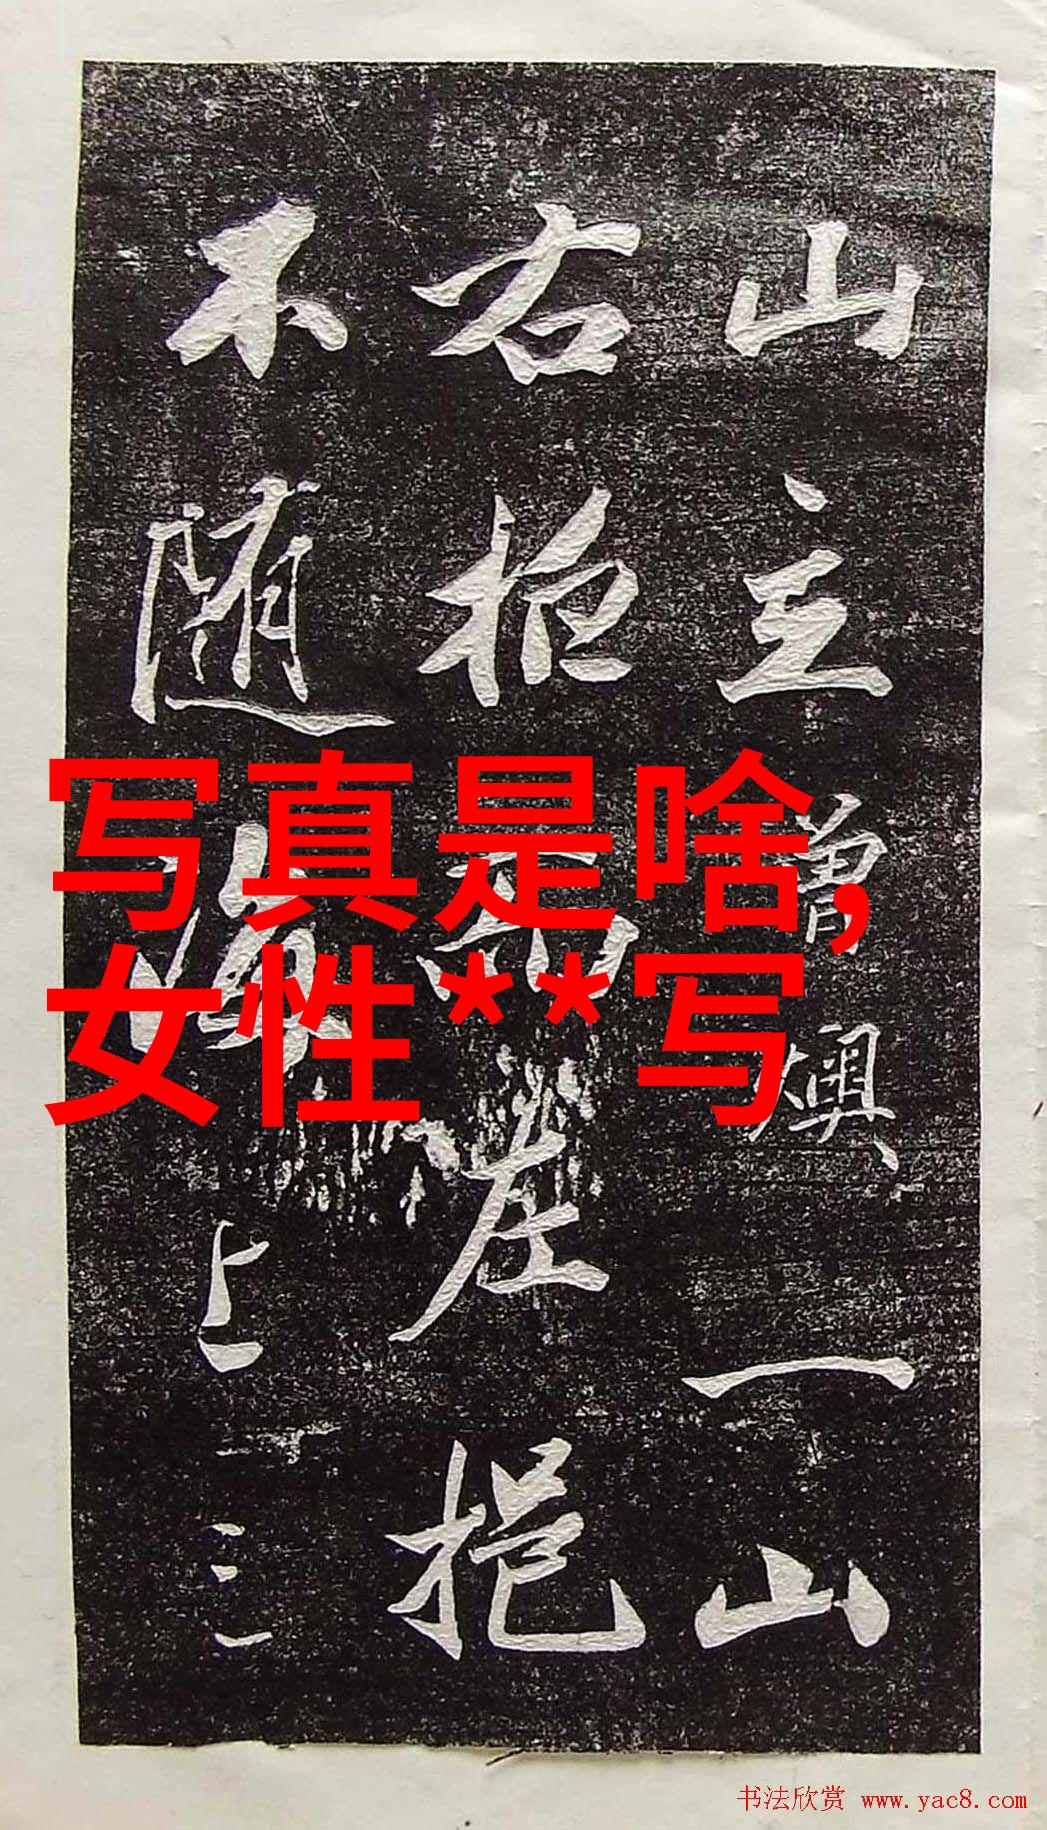 山主曾燠、一山
右抱而左挹
不随缘上三
写真是啥,
女性**写
书法欣赏 www.yac8.com